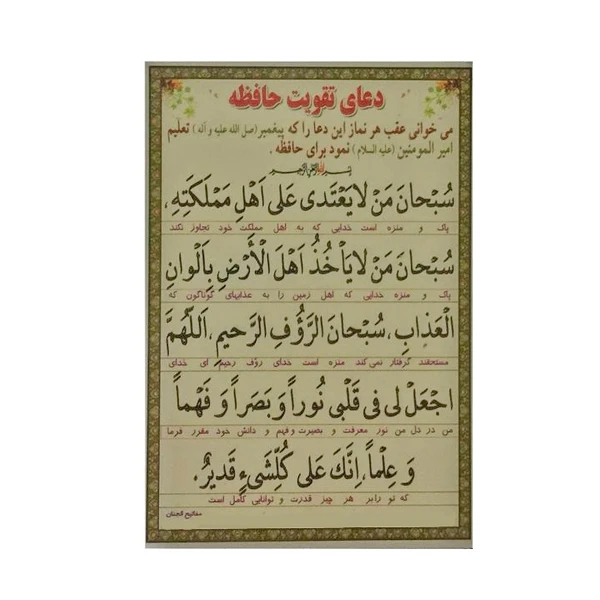 دعای تقویت حافظه
می خوانی عقب هر نماز این دعا را که پیغمبر (صل الله علیه و آله) تعلیم
امیر المومنین (علیه السلام) نمود برای حافظه .
بسم الله الرحمن الرحیم
سُبْحانَ مَنْ لایَعْتَدی عَلی اَهْلِ مَمْلَکَتِهِ،
پاک و منزه است خدایی که به اهل مملکت خود تجاوز نکند
سُبْحانَ مَنْ لایَأخُذُ اَهْلَ الْأَرْضِ بِاَلْوانِ
پاک و منزه خدایی که اهل زمین را به عذابهای گوناگون که
الْعَذابِ، سُبْحانَ الرَّؤُفِ الرَّحیمِ، اَللّهُمَّ
مستحقند گرفتار نمی کند منزه است خدای رؤف رحیم ای خدای
اجْعَلْ لی فی قَلْبی نُوراً وَ بَصَراً وَ فَهْماً
من در دل من نور معرفت و بصیرت و فهم و دانش خود مقرر فرما
وَ عِلْماً، اِنَّکَ عَلی کُلِّشَیءٍ قَدیرٌ.
که تو رابر هر چیز قدرت و توانایی کامل است
مفاتیح الجنان